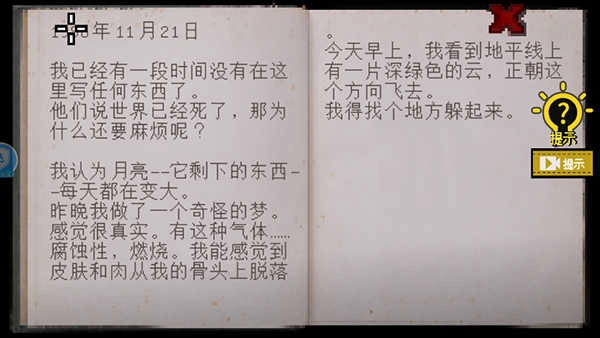 年11月21日
我已经有一段时间没有在这
里写任何东西了。
他们说世界已经死了，那为
什么还要麻烦呢？
我认为月亮--它剩下的东西-
-每天都在变大。
昨晚我做了一个奇怪的梦。
感觉很真实。有这种气体……
腐蚀性，燃烧。我能感觉到
皮肤和肉从我的骨头上脱落
。
今天早上，我看到地平线上
有一片深绿色的云，正朝这
个方向飞去。
我得找个地方躲起来。
?
提示
提示